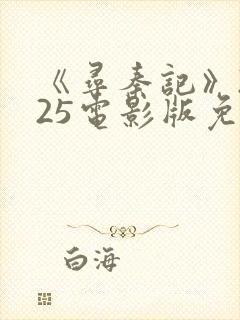 《尋秦記》
25電影版免
白海